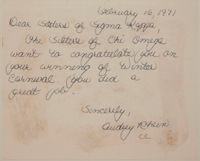 February 16, 1971
Dear Sisters of Sigma Kappa,
The Sisters of Chi Omega
want to congratulate you on
your winning of Winter
Carnival. You did a
great job.
Sincerely,
Audrey